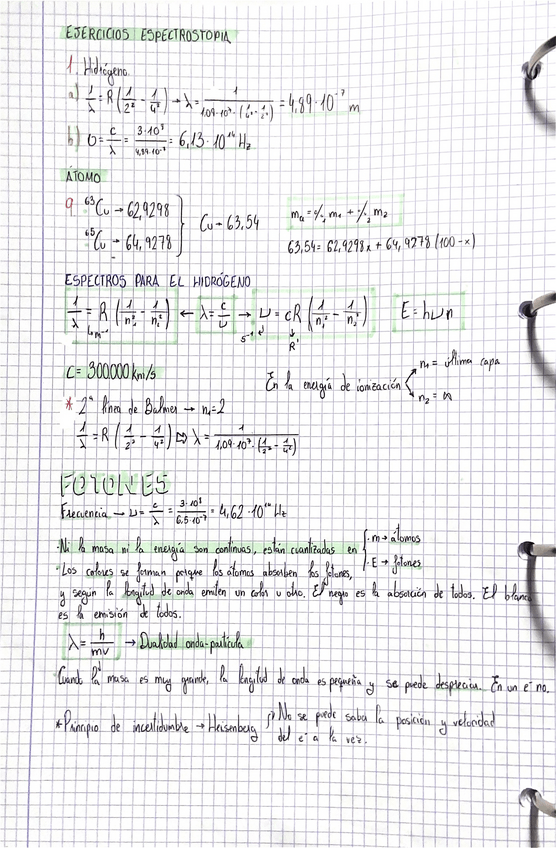 EJERCICIOS ESPECTROSTOPIA
1. Hidrógeno.
a) 1/λ = R (1/2² - 1/4²) → λ = 1/(1,09·10⁷·(1/2² - 1/4²)) = 4,89·10⁻⁷ m
b) υ = c/λ = 3·10⁸/4,89·10⁻⁷ = 6,13·10¹⁴ Hz
ÁTOMO
9 ⁶³Cu → 62,9298
⁶⁵Cu → 64,9278
Cu → 63,54
mₐ = %₁ m₁ + %₂ m₂
63,54 = 62,9298x + 64,9278 (100-x)
ESPECTROS PARA EL HIDRÓGENO
1/λ = R (1/n₁² - 1/n₂²) ← λ = c/υ → υ = cR (1/n₁² - 1/n₂²) E = hυn
m⁻¹ s⁻¹ R'
C = 300000 km/s
En la energía de ionización n₁ = última capa
n₂ = ∞
* 2ª línea de Balmer → n₁=2
1/λ = R (1/2² - 1/4²) ⇨ λ = 1/(1,09·10⁷·(1/2² - 1/4²))
FOTONES
Frecuencia → υ = c/λ = 3·10⁸/6,5·10⁻⁷ = 4,62·10¹⁴ Hz
·Ni la masa ni la energía son continuas, están cuantizadas en
·m → átomos
·E → fotones
·Los colores se forman porque los átomos absorben los fotones,
y según la longitud de onda emiten un color u otro. El negro es la absorción de todos. El blanco
es la emisión de todos.
λ = h/mv → Dualidad onda-partícula
Cuando la masa es muy grande, la longitud de onda es pequeña y se puede despreciar. En un e⁻ no.
*Principio de incertidumbre → Heisenberg
No se puede saba la posición y velocidad
del e⁻ a la vez.